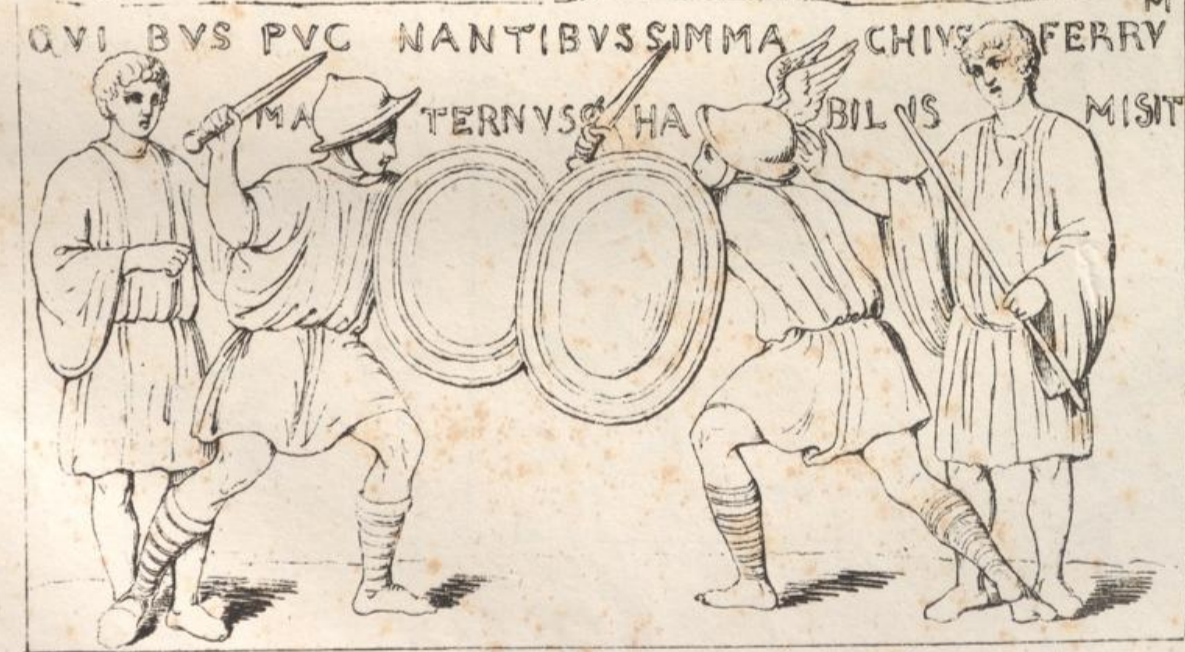 QVI BVS PVC NANTIBVS SIMMA CHIVS FERRVM
MA TERNVS Ø HA BILVS MISIT